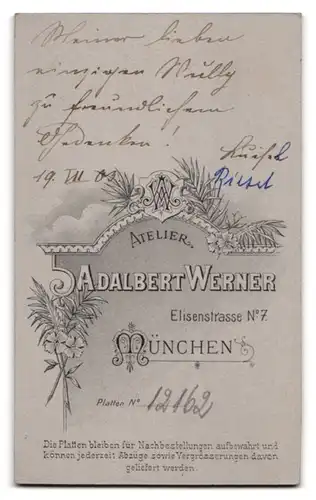 Meiner lieben
einzigen Mully
zu freundlichem
Gedenken!
19. VII 03. Riesel
AW
ATELIER
ADALBERT WERNER
Elisenstrasse No 7.
MÜNCHEN
Platten No 12162
Die Platten bleiben für Nachbestellungen aufbewahrt und
können jederzeit Abzüge sowie Vergrösserungen davon
geliefert werden.